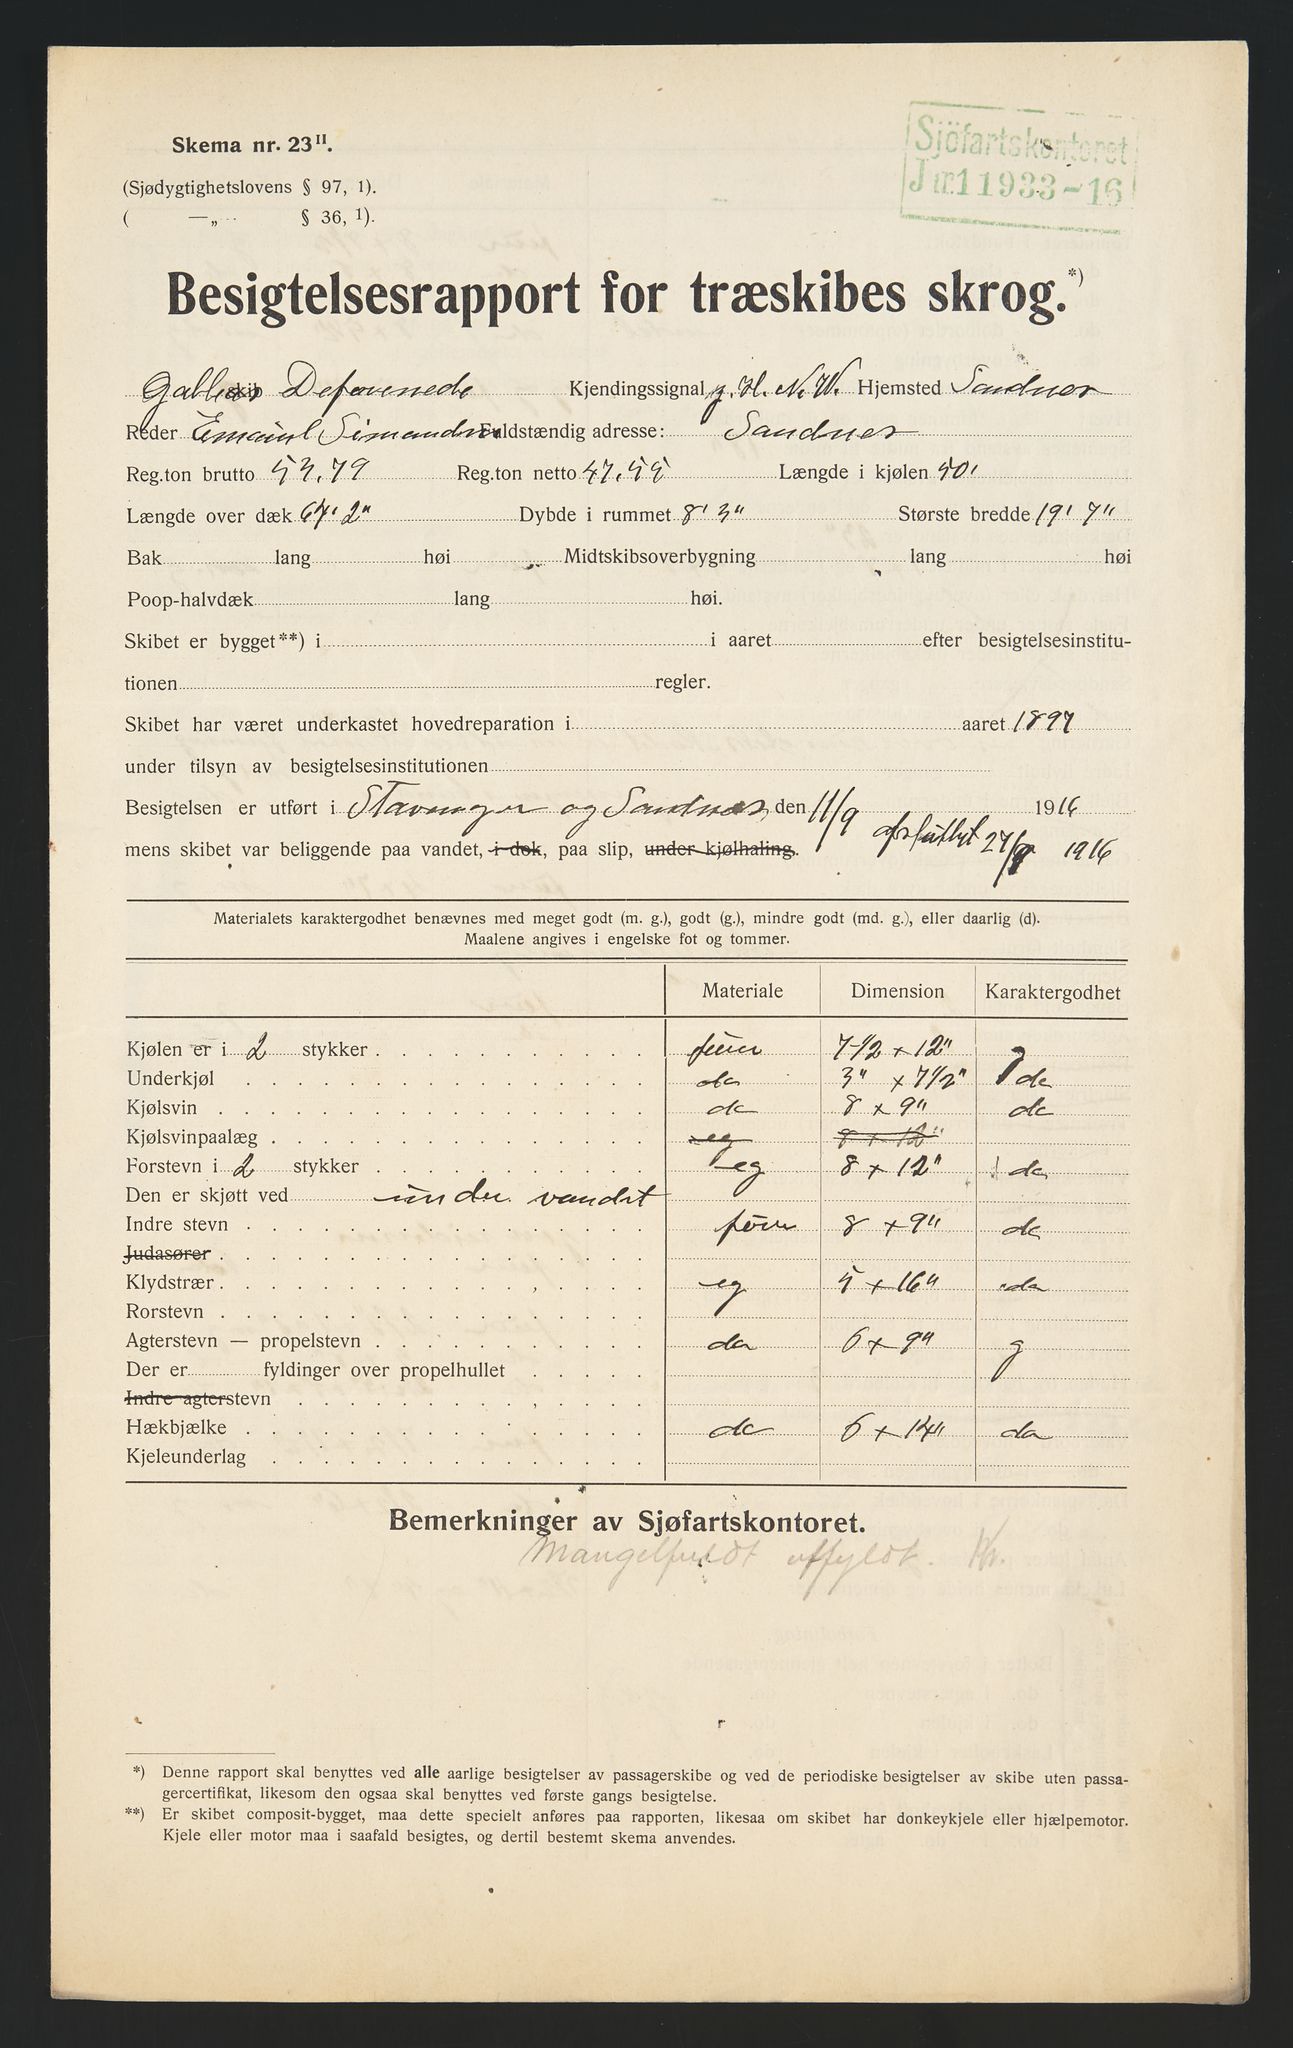 Skema nr. 23 II.
(Sjødygtighetslovens § 97, 1).
( —„— § 36, 1).
Sjöfartskontoret
J nr. 11933-16
Besigtelsesrapport for træskibes skrog.*)
skib De forenede Kjendingssignal H. N. W. Hjemsted Sandnes
Reder Simonsen Fuldstændig adresse: Sandnes
Reg.ton brutto 53,79 Reg.ton netto 47,55 Længde i kjølen 50'
Længde over dæk 67' 2" Dybde i rummet 8' 3" Største bredde 19' 7"
Bak lang høi Midtskibsoverbygning lang høi
Poop-halvdæk lang høi.
Skibet er bygget**) i i aaret efter besigtelsesinstitu-
tionen regler.
Skibet har været underkastet hovedreparation i aaret 1897
under tilsyn av besigtelsesinstitutionen
Besigtelsen er utført i Stavanger og Sandnes, den 11/9 1916
mens skibet var beliggende paa vandet, i dok, paa slip, under kjølhaling. afsluttet 27/9 1916
Materialets karaktergodhet benævnes med meget godt (m. g.), godt (g.), mindre godt (md. g.), eller daarlig (d).
Maalene angives i engelske fot og tommer.
Materiale Dimension Karaktergodhet
Kjølen er i 2 stykker furu 7 1/2 x 12" g
Underkjøl do 3" x 7 1/2" do
Kjølsvin do 8 x 9" do
Kjølsvinpaalæg eg 8 x 12"
Forstevn i 2 stykker eg 8 x 12" do
Den er skjøtt ved under vandet
Indre stevn furu 8 x 9" do
Judasører
Klydstrær eg 5 x 16" do
Rorstevn
Agterstevn — propelstevn do 6 x 9" g
Der er fyldinger over propelhullet
Indre agterstevn
Hækbjælke do 6 x 14" do
Kjeleunderlag
Bemerkninger av Sjøfartskontoret.
Mangelfuldt utfyldt. Kr.
*) Denne rapport skal benyttes ved alle aarlige besigtelser av passagerskibe og ved de periodiske besigtelser av skibe uten passa-
gercertifikat, likesom den ogsaa skal benyttes ved første gangs besigtelse.
**) Er skibet composit-bygget, maa dette specielt anføres paa rapporten, likesaa om skibet har donkeykjele eller hjælpemotor.
Kjele eller motor maa i saafald besigtes, og dertil bestemt skema anvendes.